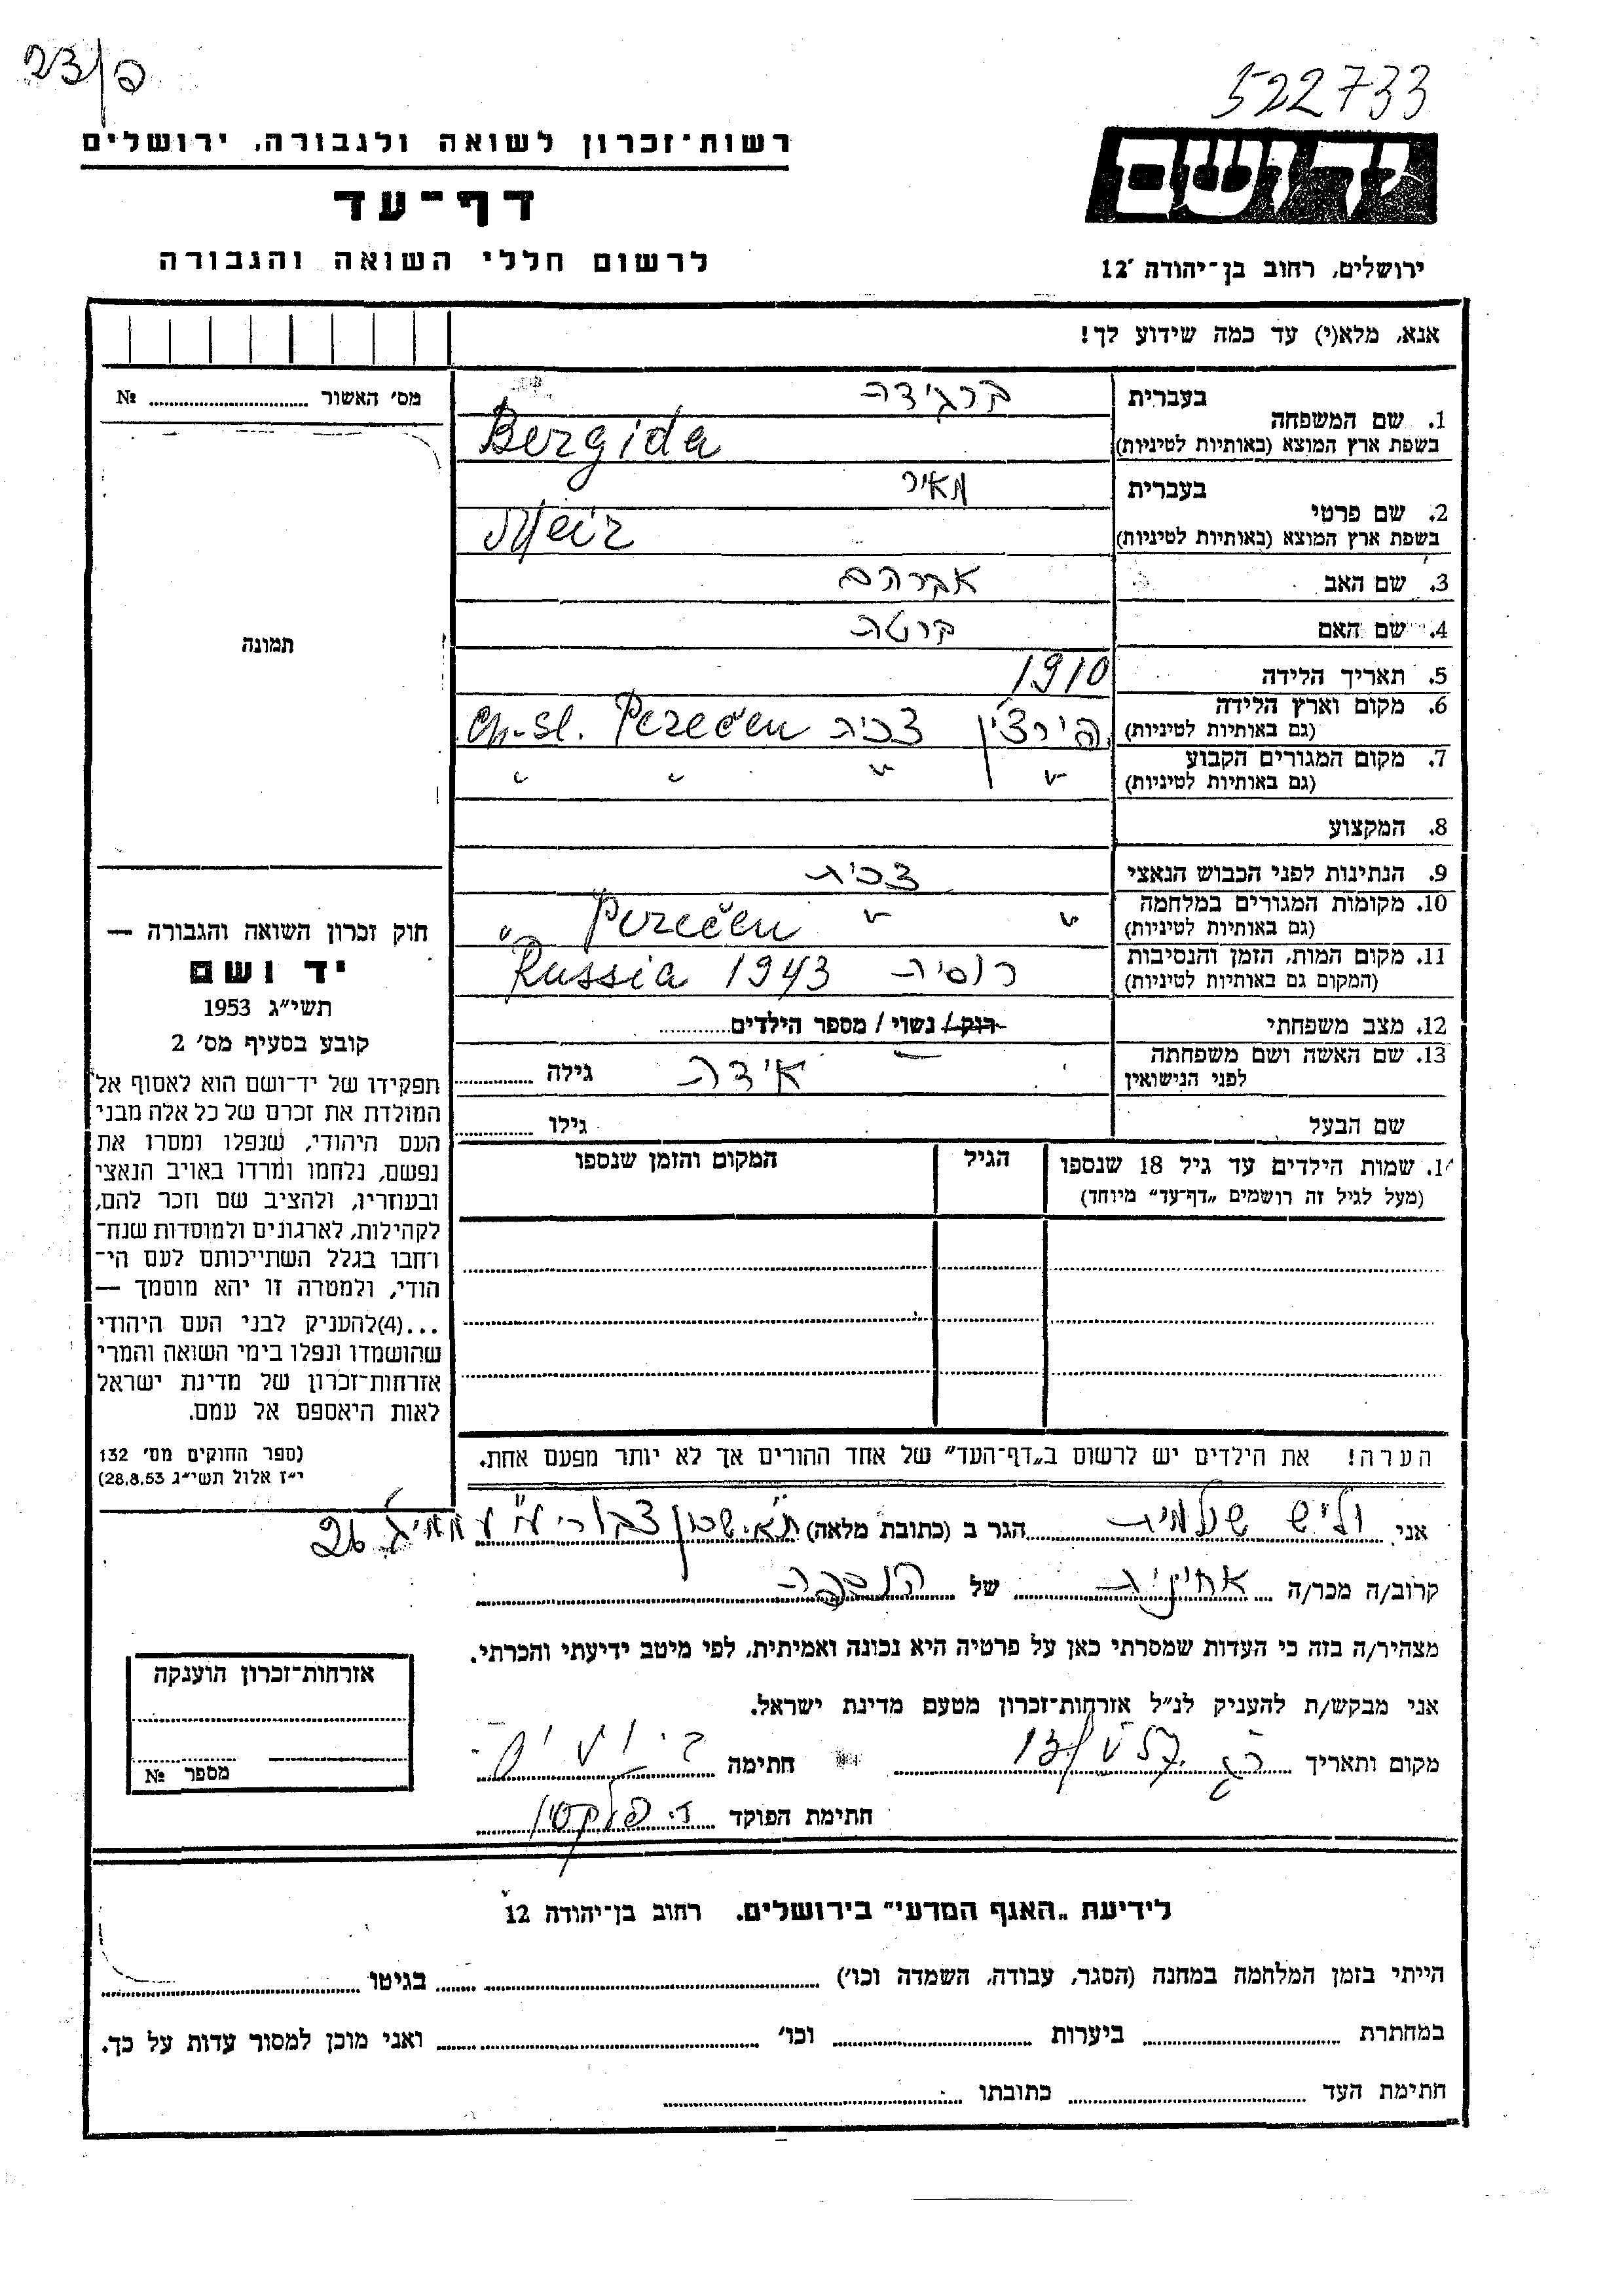 פ/23
522733
יד ושם
רשות־זכרון לשואה ולגבורה, ירושלים
דף־עד
לרשום חללי השואה והגבורה
ירושלים, רחוב בן־יהודה 12
אנא, מלא(י) עד כמה שידוע לך!
מס׳ האשור ........ №
תמונה
1. שם המשפחה
בעברית ברגידה
בשפת ארץ המוצא (באותיות לטיניות) Bergida
2. שם פרטי
בעברית מאיר
בשפת ארץ המוצא (באותיות לטיניות) Meir
3. שם האב אברהם
4. שם האם ברטה
5. תאריך הלידה 1910
6. מקום וארץ הלידה
(גם באותיות לטיניות) פירצ'ין צכית Perečen Ch-sl.
7. מקום המגורים הקבוע
(גם באותיות לטיניות) " " " "
8. המקצוע
9. הנתינות לפני הכבוש הנאצי צכית
10. מקומות המגורים במלחמה
(גם באותיות לטיניות) " " Perečen "
11. מקום המות, הזמן והנסיבות
(המקום גם באותיות לטיניות) רוסיה Russia 1943
12. מצב משפחתי רווק / נשוי / מספר הילדים........
13. שם האשה ושם משפחתה
לפני הנישואין אידה גילה ........
שם הבעל גילו ........
14. שמות הילדים עד גיל 18 שנספו
(מעל לגיל זה רושמים „דף־עד” מיוחד)
הגיל
המקום והזמן שנספו
חוק זכרון השואה והגבורה —
יד ושם
תשי״ג 1953
קובע בסעיף מס׳ 2
תפקידו של יד־ושם הוא לאסוף אל
המולדת את זכרם של כל אלה מבני
העם היהודי, שנפלו ומסרו את
נפשם, נלחמו ומרדו באויב הנאצי
ובעוזריו, ולהציב שם וזכר להם,
לקהילות, לארגונים ולמוסדות שנח־
רבו בגלל השתייכותם לעם הי־
הודי, ולמטרה זו יהא מוסמך —
...(4)להעניק לבני העם היהודי
שהושמדו ונפלו בימי השואה והמרי
אזרחות־זכרון של מדינת ישראל
לאות היאספם אל עמם.
(ספר החוקים מס׳ 132
י״ז אלול תשי״ג 28.8.53)
הערה! את הילדים יש לרשום ב„דף־העד” של אחד ההורים אך לא יותר מפעם אחת.
אני וליש שולמית הגר ב (כתובת מלאה) שכון 26
קרוב/ה מכר/ה אחינית של הנספה
מצהיר/ה בזה כי העדות שמסרתי כאן על פרטיה היא נכונה ואמיתית, לפי מיטב ידיעתי והכרתי.
אני מבקש/ת להעניק לנ״ל אזרחות־זכרון מטעם מדינת ישראל.
מקום ותאריך חתימה
חתימת הפוקד
אזרחות־זכרון הוענקה
מספר №
לידיעת „האגף המדעי” בירושלים, רחוב בן־יהודה 12
הייתי בזמן המלחמה במחנה (הסגר, עבודה, השמדה וכו׳) ........ בגיטו ........
במחתרת ........ ביערות ........ וכו׳ ........ ואני מוכן למסור עדות על כך.
חתימת העד ........ כתובתו ........